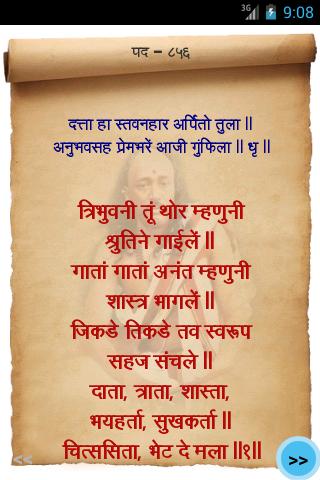 3G 9:08
पद - ८५६
दत्ता हा स्तवनहार अर्पितो तुला ll
अनुभवसह प्रेमभरें आजी गुंफिला ll धृ ll
त्रिभुवनी तूं थोर म्हणुनी
श्रुतिने गाईलें ll
गातां गातां अनंत म्हणुनी
शास्त्र भागलें ll
जिकडे तिकडे तव स्वरूप
सहज संचले ll
दाता, त्राता, शास्ता,
भयहर्ता, सुखकर्ता ll
चित्ससिता, भेट दे मला ll१ll
<< >>